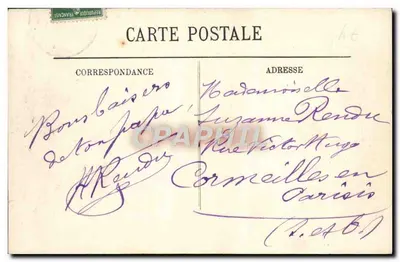 CARTE POSTALE
CORRESPONDANCE
Bons baisers
de ton papa
HRendu
ADRESSE
Mademoiselle
Suzanne Rendu
Rue Victor Hugo
Cormeilles en
Parisis
(S. et O.)